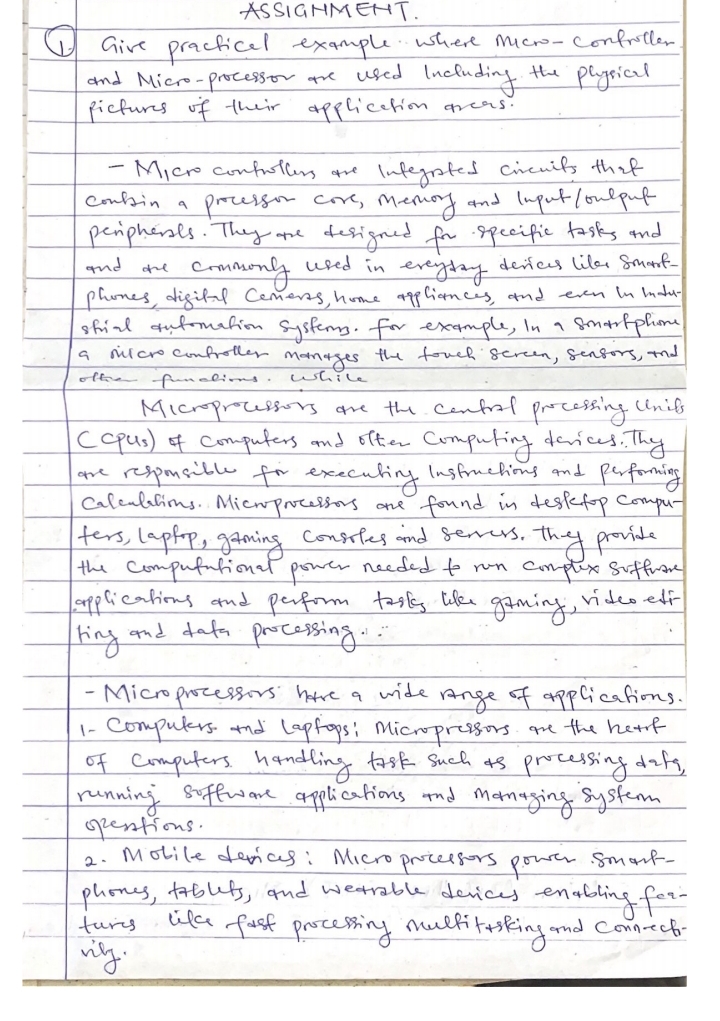 ASSIGNMENT.
1. Give practical example where Micro-controller
and Micro-processor are used Including the physical
pictures of their application areas.
- Micro controllers are Integrated circuits that
contain a processor core, memory and Input/output
peripherals. They are designed for specific tasks and
and are commonly used in everyday devices like Smart-
phones, digital Cameras, home appliances, and even In Indu-
strial automation Systems. For example, In a Smartphone
a micro controller manages the touch screen, sensors, and
other functions. While
Microprocessors are the central processing Units
(CPUs) of Computers and other Computing devices. They
are responsible for executing Instructions and performing
Calculations. Microprocessors are found in desktop Compu-
ters, laptop, gaming Consoles and servers. They provide
the Computational power needed to run complex Software
applications and perform tasks like gaming, video edi-
ting and data processing.
- Microprocessors have a wide range of applications.
1- Computers and Laptops: Micropressors are the heart
of Computers handling task such as processing data,
running software applications and managing System
operations.
2. Mobile devices: Microprocessors power Smart-
phones, tablets, and wearable devices enabling fea-
tures like fast processing multitasking and Connecti-
vity.